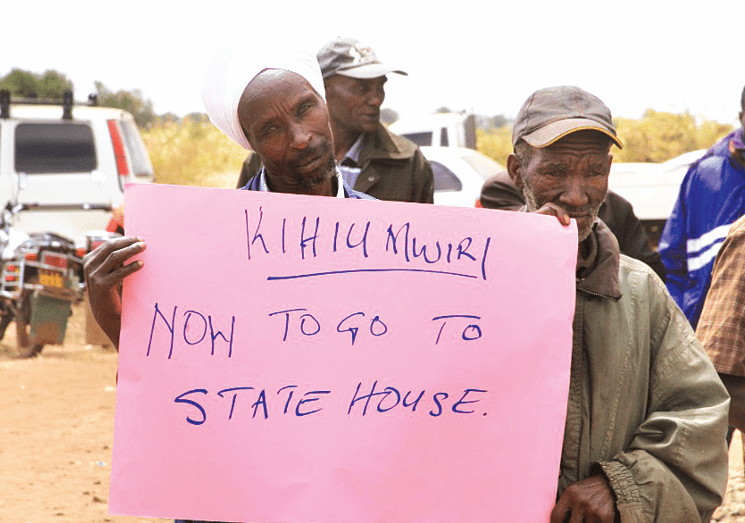 KIHIU MWIRI
NOW TO GO TO
STATE HOUSE.